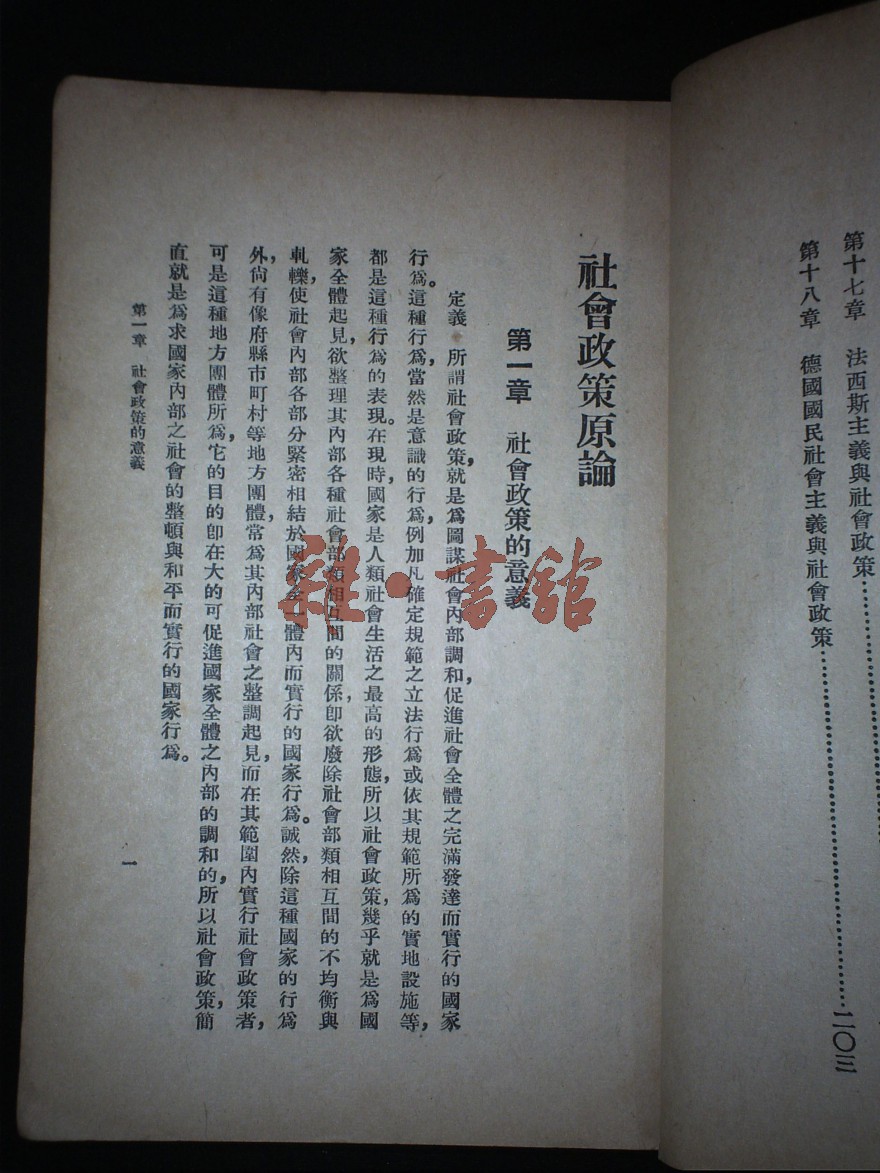 第十七章　法西斯主義與社會政策……………………
第十八章　德國國民社會主義與社會政策……………………二〇三
社會政策原論
第一章　社會政策的意義
定義　所謂社會政策，就是爲圖謀社會內部調和，促進社會全體之完滿發達而實行的國家
行爲。這種行爲，當然是意識的行爲，例加凡確定規範之立法行爲或依其規範所爲的實地設施等，
都是這種行爲的表現。在現時，國家是人類社會生活之最高的形態，所以社會政策，幾乎就是爲國
家全體起見，欲整理其內部各種社會部類相互間的關係，卽欲廢除社會部類相互間的不均衡與
軋轢，使社會內部各部分緊密相結於國家全一體內而實行的國家行爲。誠然，除這種國家的行爲
外，尙有像府縣市町村等地方團體，常爲其內部社會之整調起見，而在其範圍內實行社會政策者，
可是這種地方團體所爲，它的目的卽在大的可促進國家全體之內部的調和的，所以社會政策，簡
直就是爲求國家內部之社會的整頓與和平而實行的國家行爲。
第一章　社會政策的意義
一
雜·書館